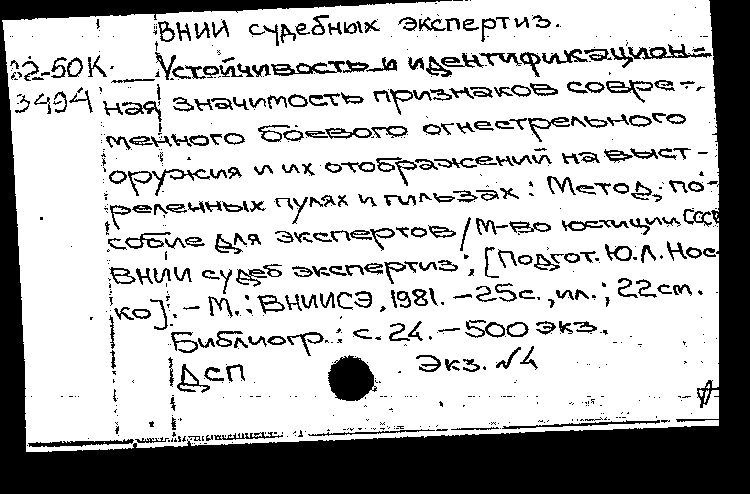 ВНИИ судебных экспертиз.
82-50К Устойчивость и идентификацион-
3494 ная значимость признаков совре-
менного боевого огнестрельного
оружия и их отображений на выст-
реленных пулях и гильзах: Метод. по-
собие для экспертов/М-во юстиции СССР
ВНИИ судеб экспертиз; [Подгот. Ю.Л. Нос-
ко]. – М.: ВНИИСЭ, 1981. – 25с., ил.; 22см.
Библиогр.: с. 24. – 500 экз.
ДСП Экз. №4